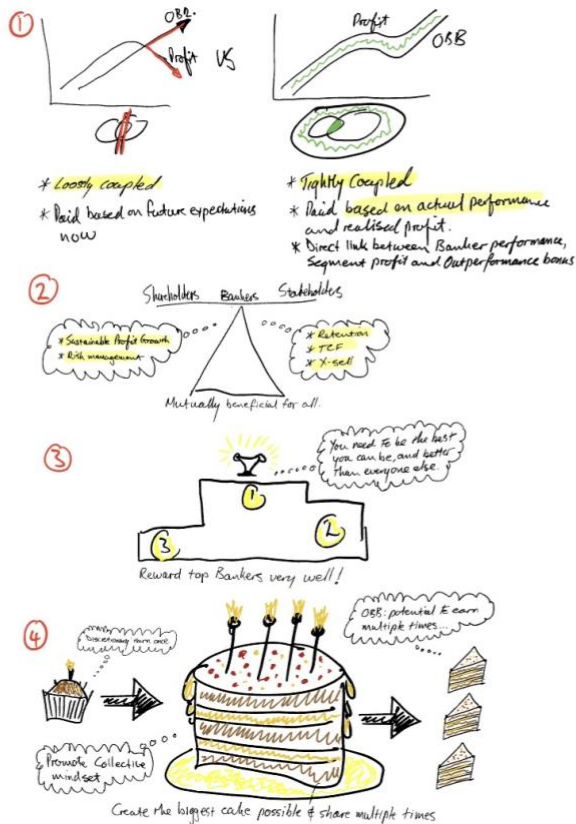 1
OBB.
Profit
VS
Profit
OBB
* Loosly coupled
* Paid based on future expectations
now
* Tightly Coupled
* Paid based on actual performance
and realised profit.
* Direct link between Banker performance,
Segment profit and Outperformance bonus
2
Shareholders Bankers Stakeholders
* Sustainable Profit Growth
* Risk management
* Retention
* TCF
* X-sell
Mutually beneficial for all.
3
You need to be the best
you can be, and better
than everyone else.
1
2
3
Reward top Bankers very well!
4
Discretionary: earn once
OBB: potential to earn
multiple times...
Promote Collective
mindset
Create the biggest cake possible & share multiple times